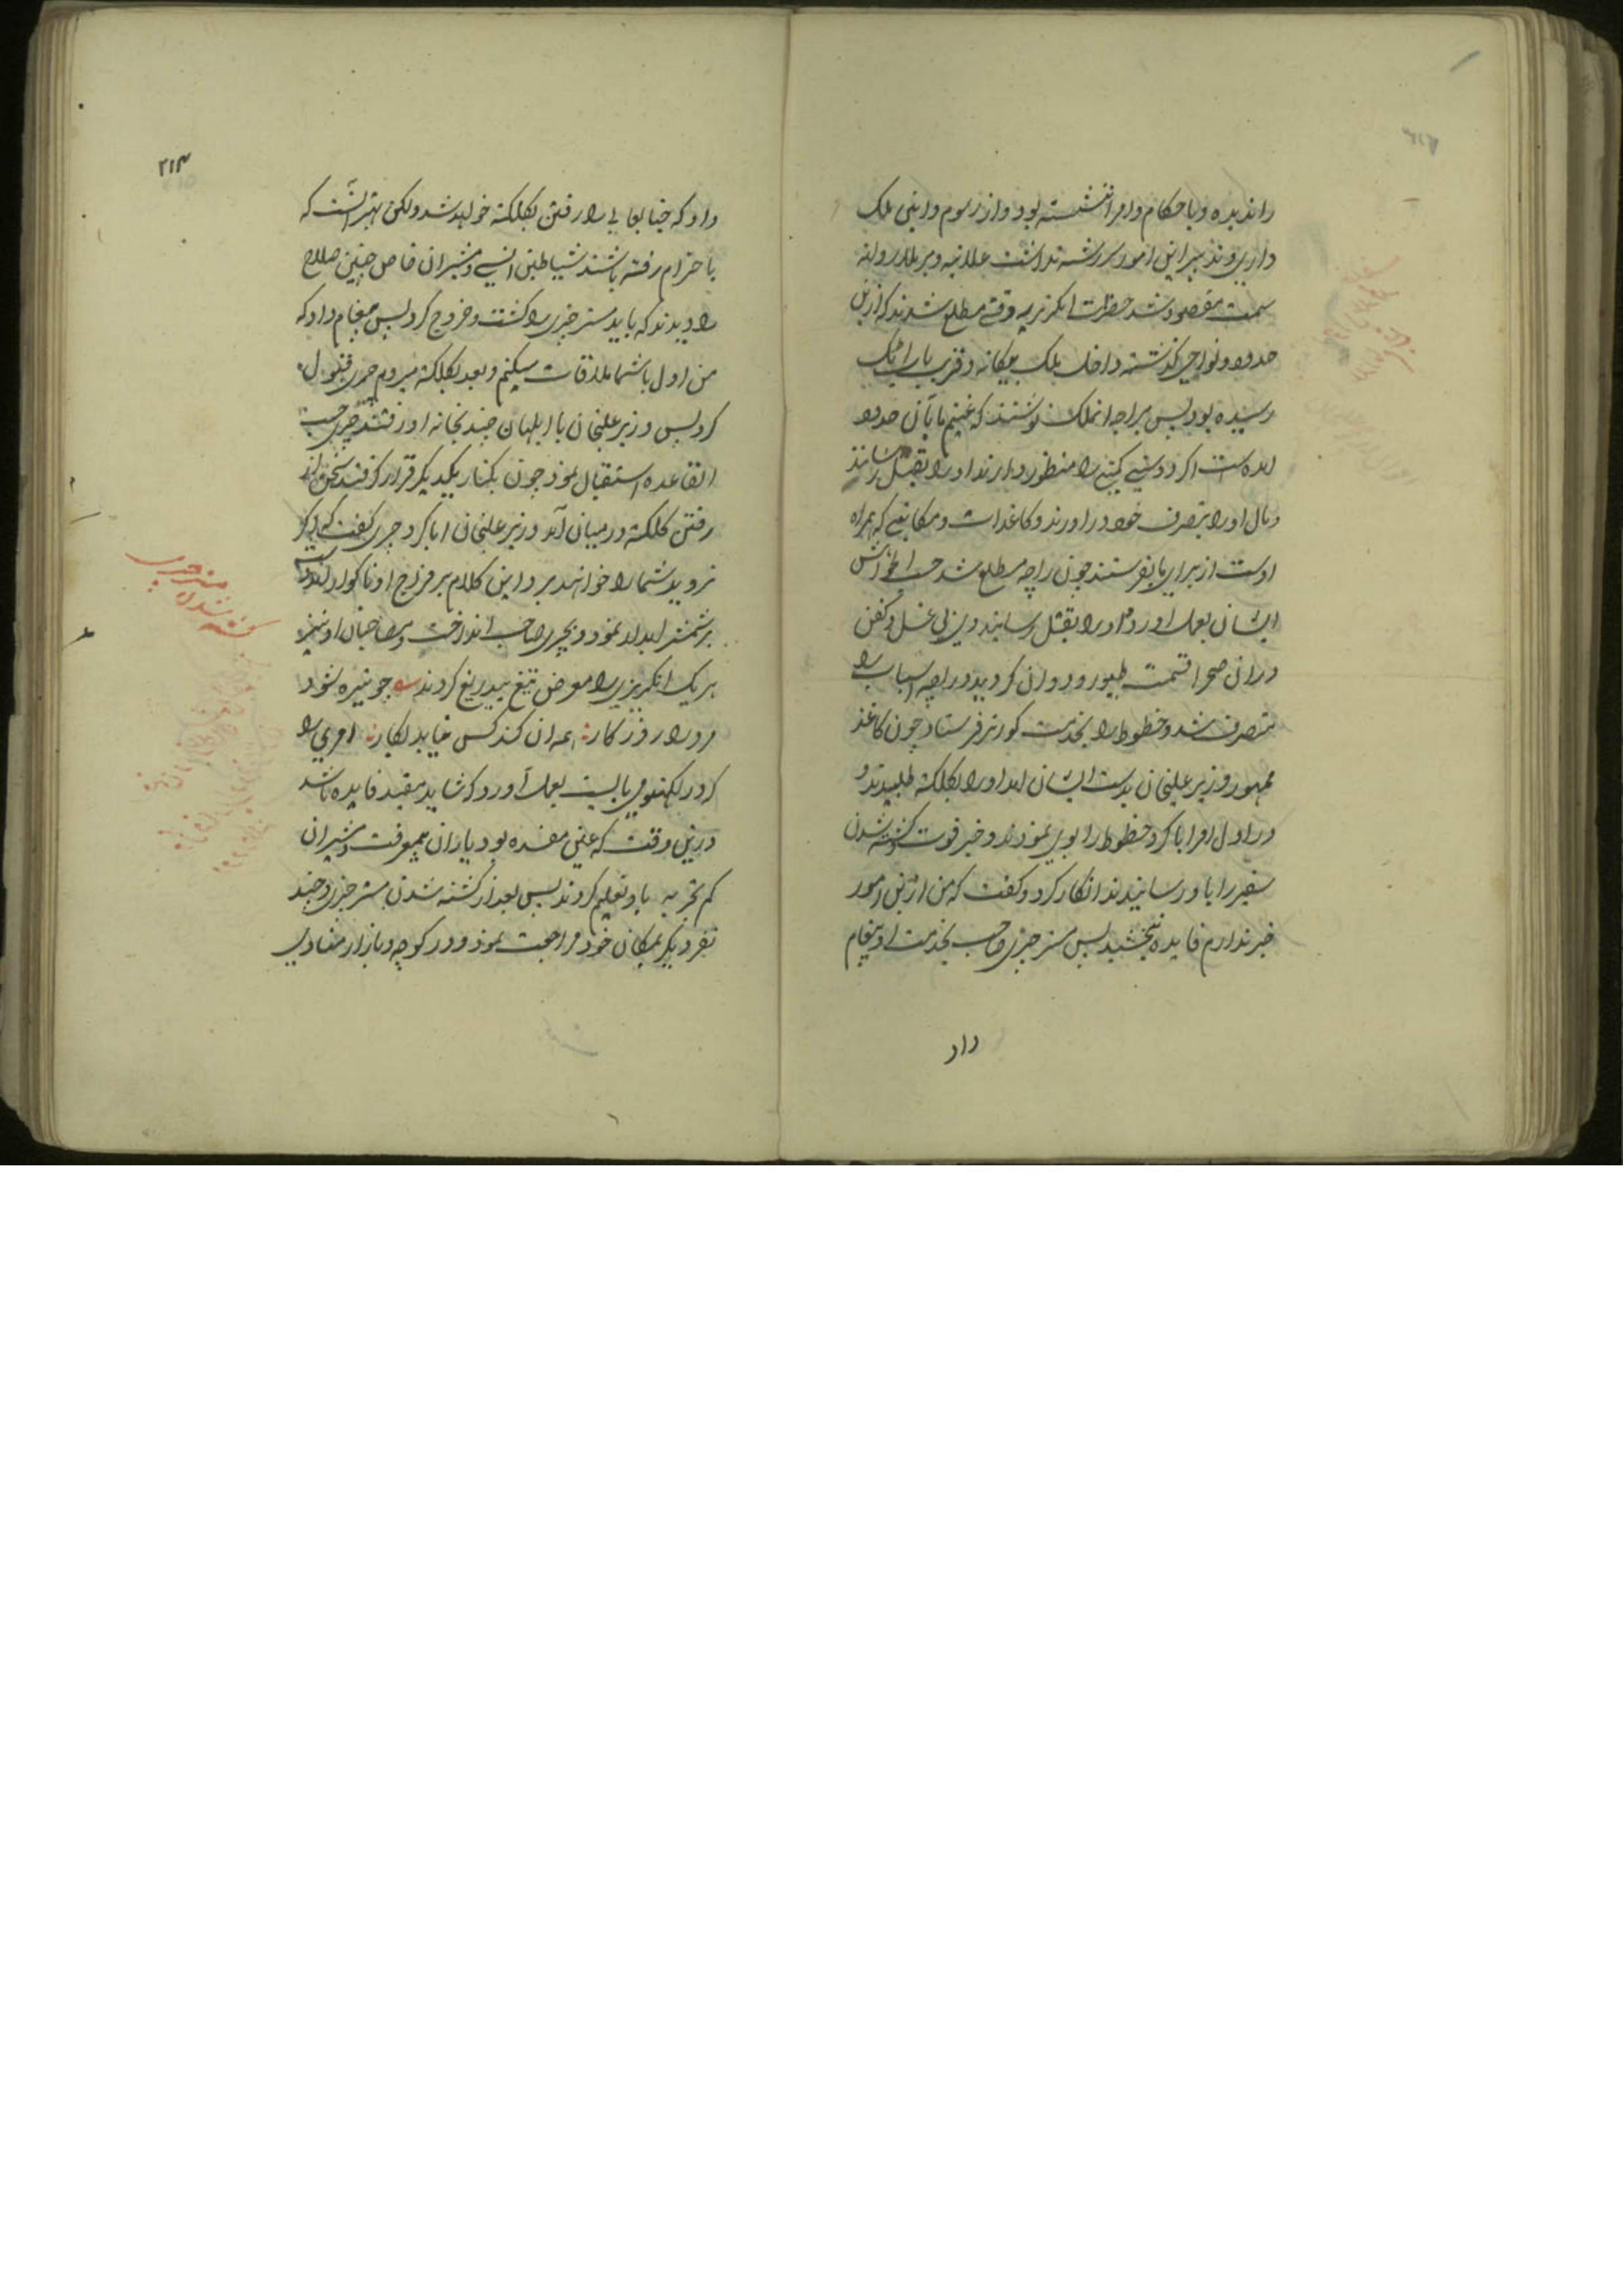 را ندیده و با حکام و امرا ننشسته بود و از رسوم و آئین ملک
داری و تدبیر این امور سررشته نداشت علانیه و برملا روانه
سمت مقصود شد حضرات انگریزیه وقتی مطلع شدند که ازین
حدود و نواحی گذشته داخل ملک بیگانه و قریب باراتیک
رسیده بود پس براجه انملک نوشتند که غنیم ما بآن حدود
امده است اگر دوستی کمپنی را منظور دارند او را بقتل رسانند
و مال او را بتصرف خود در اورند و کاغذات و مکاتبی که همراه
اوست از برای ما بفرستند چون راجه مطلع شد حسب الخواهش
ایشان بعمل اورد و او را بقتل رسانیدند بی غسل و کفن
دران صحرا قسمت طیور و ددان گردید و راجه اسباب را
متصرف شد و خطوط را بخدمت گورنر فرستاد چون کاغذ
ممهور وزیر علیخان بدست ایشان امد او را بکلکته طلبیدند و
در اول امر ابا کرد خطوط را بوی نمودند و خبر فوت و کشته شدن
سفیر را باو رسانیدند انکار کرد و گفت که من ازین امور
خبر ندارم فایده نبخشید پس مستر چری صاحب بخدمت او پیغام
داد
۲۱۳
داد که جنابعالی را رفتن بکلکته خواهد شد ولکن بهتر آنست که
باحترام رفته باشند شیاطین انسی و مشیران خاص چنین صلاح
را دیدند که باید مستر چری را کشت و خروج کرد پس پیغام داد که
من اول با شما ملاقات میکنم و بعد بکلکته میروم چری قبول
کرد پس وزیر علیخان با ابلهان چند بخانه او رفتند چری حسب
القاعده استقبال نمود چون بکنار یکدیگر قرار گرفتند سخن از
رفتن کلکته درمیان آمد وزیر علیخان ابا کرد چری گفت که اگر
نروید شما را خواهند برد این کلام بر مزاج او ناگوار امد دست
بشمشیر ابدار نمود و بچری صاحب انداخت و مصاحبان او نیز
هر یک انگریزی را معرض تیغ بیدریغ کردند چو تیره شود
مرد را روزگار همه آن کند کش نیاید بکار امری را
که در لکهنو می بایست بعمل آورد که شاید مفید فایده باشد
درین وقت که عین مفسده بود یاران بیمعرفت و مشیران
کم تجربه باو تعلیم کردند پس بعد از کشته شدن مستر چری و چند
نفر دیگر بمکان خود مراجعت نمود و در کوچه و بازار منادی
کشته شدن
مستر چری